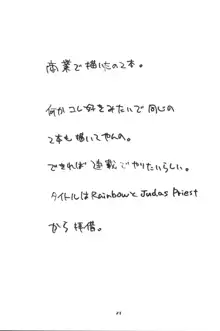 商業で描いたの2本。
何かコレ好きみたいで同じの
2本も描いてやんの。
できれば連載でやりたいらしい。
タイトルはRainbowとJudas Priest
から拝借。